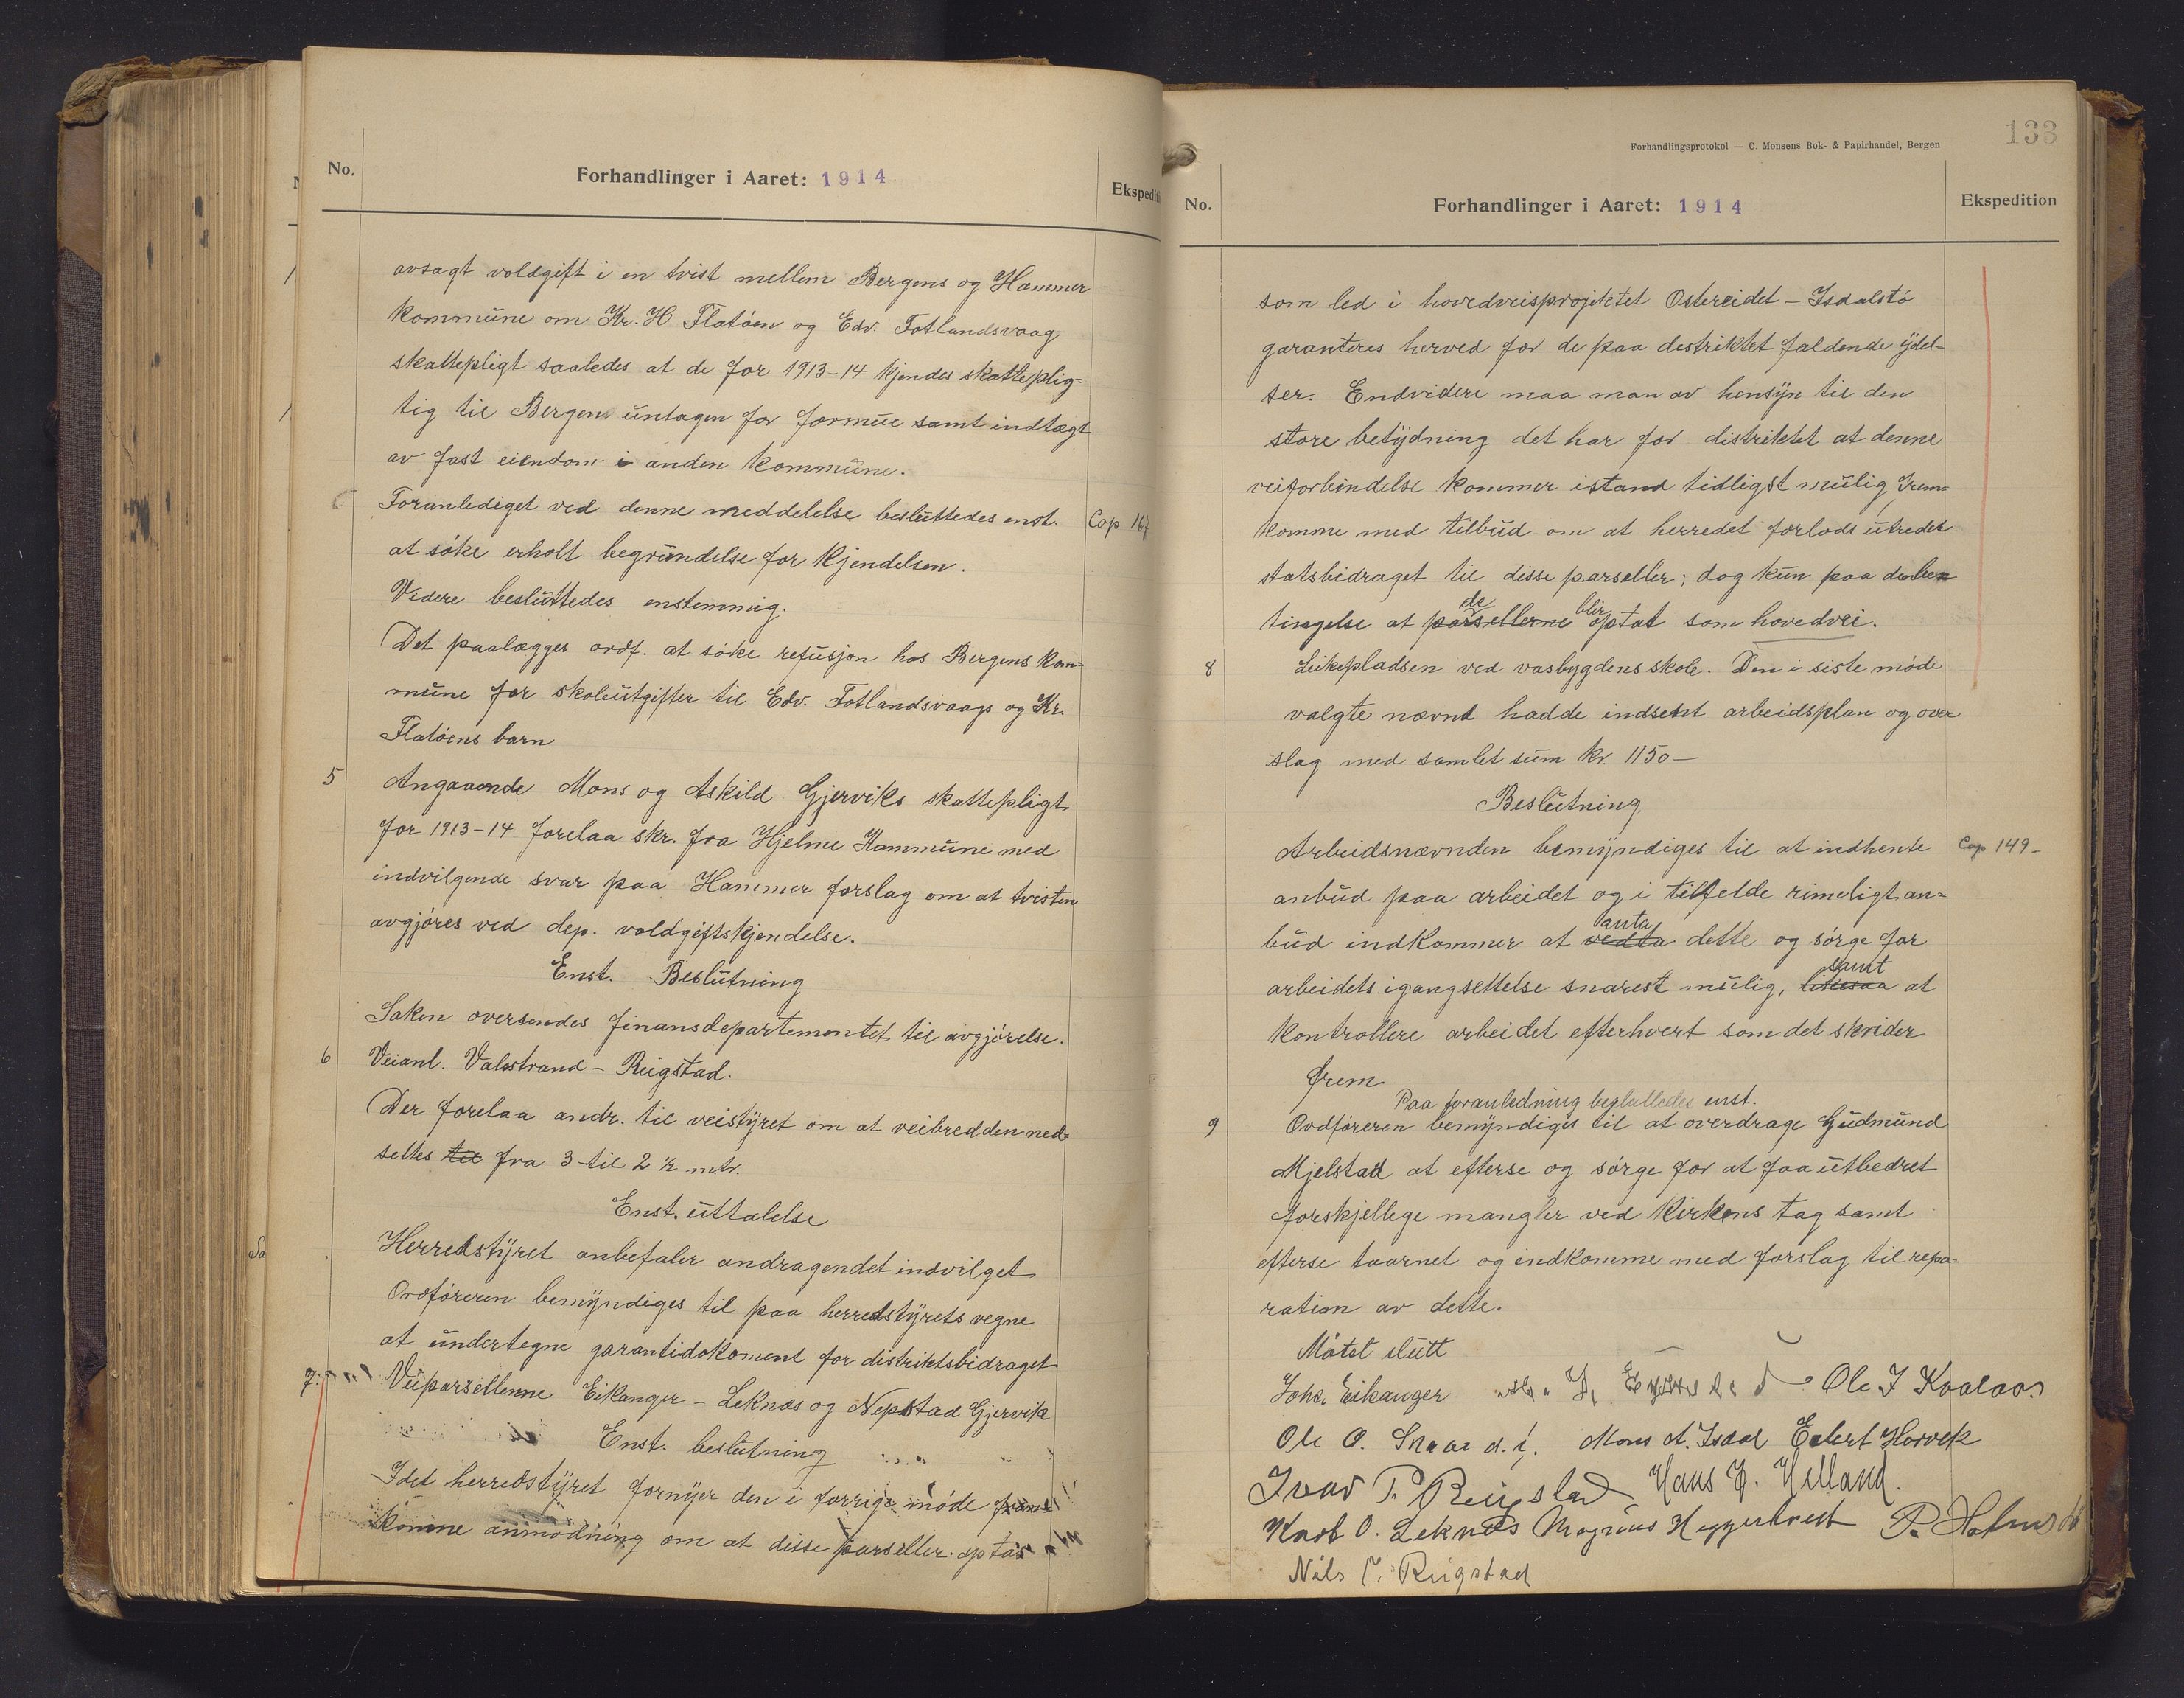 No.
Forhandlinger i Aaret: 1914
avsagt voldgift i en tvist mellem Bergens og Hammer
kommune om Kr. H Flatöen og Edv. Fotlandsvaag
skattepligt saaledes at de for 1913-14 kjendes skatteplig-
tig til Bergen untagen for formue samt indtægt
av fast eiendom i anden kommune.
Foranlediget ved denne meddelelse besluttedes enst. Cop 167
at söke erholt begrundelse for kjendelsen.
Videre besluttedes enstemmig.
Det paalægges ordf. at söke refusjon hos Bergens kom-
mune for skoleutgifter til Edv. Fotlandsvaags og Kr.
Flatöens barn
5 Angaaende Mons og Askild Gjerviks skattepligt
for 1913-14 forelaa skr. fra Hjelme Kommune med
indvilgende svar paa Hammer forslag om at tvisten
avgjöres ved dep. voldgiftskjendelse.
Enst. Beslutning
Saken oversendes finansdepartementet til avgjörelse.
6 Veianl. Valestrand - Reigstad.
Der forelaa andr. til veistyret om at veibredden ned-
settes til fra 3 til 2 1/2 mtr.
Enst. uttalelse
Herredstyret anbefaler andragendet indvilget
Ordföreren bemyndiges til paa herredstyrets vegne
at undertegne garantidokoment for distriktsbidraget
7. Veiparsellerne Eikanger - Leknes og Nepstad Gjervik
Enst. beslutning
Idet herredstyret fornyer den i forrige möde frem-
komne anmodning om at disse parseller optas
Forhandlingsprotokol — C. Monsens Bok- & Papirhandel, Bergen
133
No.
Forhandlinger i Aaret: 1914
Ekspedition
som led i hovedveisprojektet Ostereidet - Isdalstö
garanteres herved for de paa destriktet faldende ydel-
ser. Endvidere maa man av hensyn til den
store betydning det har for distriktet at denne
veiforbindelse kommer istand tidligst mulig frem-
komme med tilbud om at herredet forlods utreder
statsbidraget til disse parseller; dog kun paa den be-
de blir
tingelse at parsellerne optat som hovedvei.
8 Leikepladsen ved vasbygdens skole. Den i siste möde
valgte nævnt hadde indsent arbeidsplan og over
slag med samlet sum kr. 1150 —
Beslutning
Arbeidsnævnden bemyndiges til at indhente Cop 149-
anbud paa arbeidet og i tilfelde rimeligt an-
anta
bud indkommer at vedta dette og sörge for
samt
arbeidets igangsettelse snarest mulig, likesaa at
kontrollere arbeidet efterhvert som det skrider
frem
Paa foranledning besluttedes enst.
9 Ordföreren bemyndiges til at overdrage Gudmund
Mjelstad at efterse og sörge for at faa utbedret
forskjellege mangler ved kirkens tag samt
efterse taarnet og indkomme med forslag til repa-
ration av dette.
Mötet slutt
Johs. Eikanger Ole J Kaalaas
Ole O. Mons A. Isdal Eilert Horvik
Ivar P. Reigstad Hans J. Helland.
Knut O. Leknes Magnus Heggertveit P.
Nils Reigstad